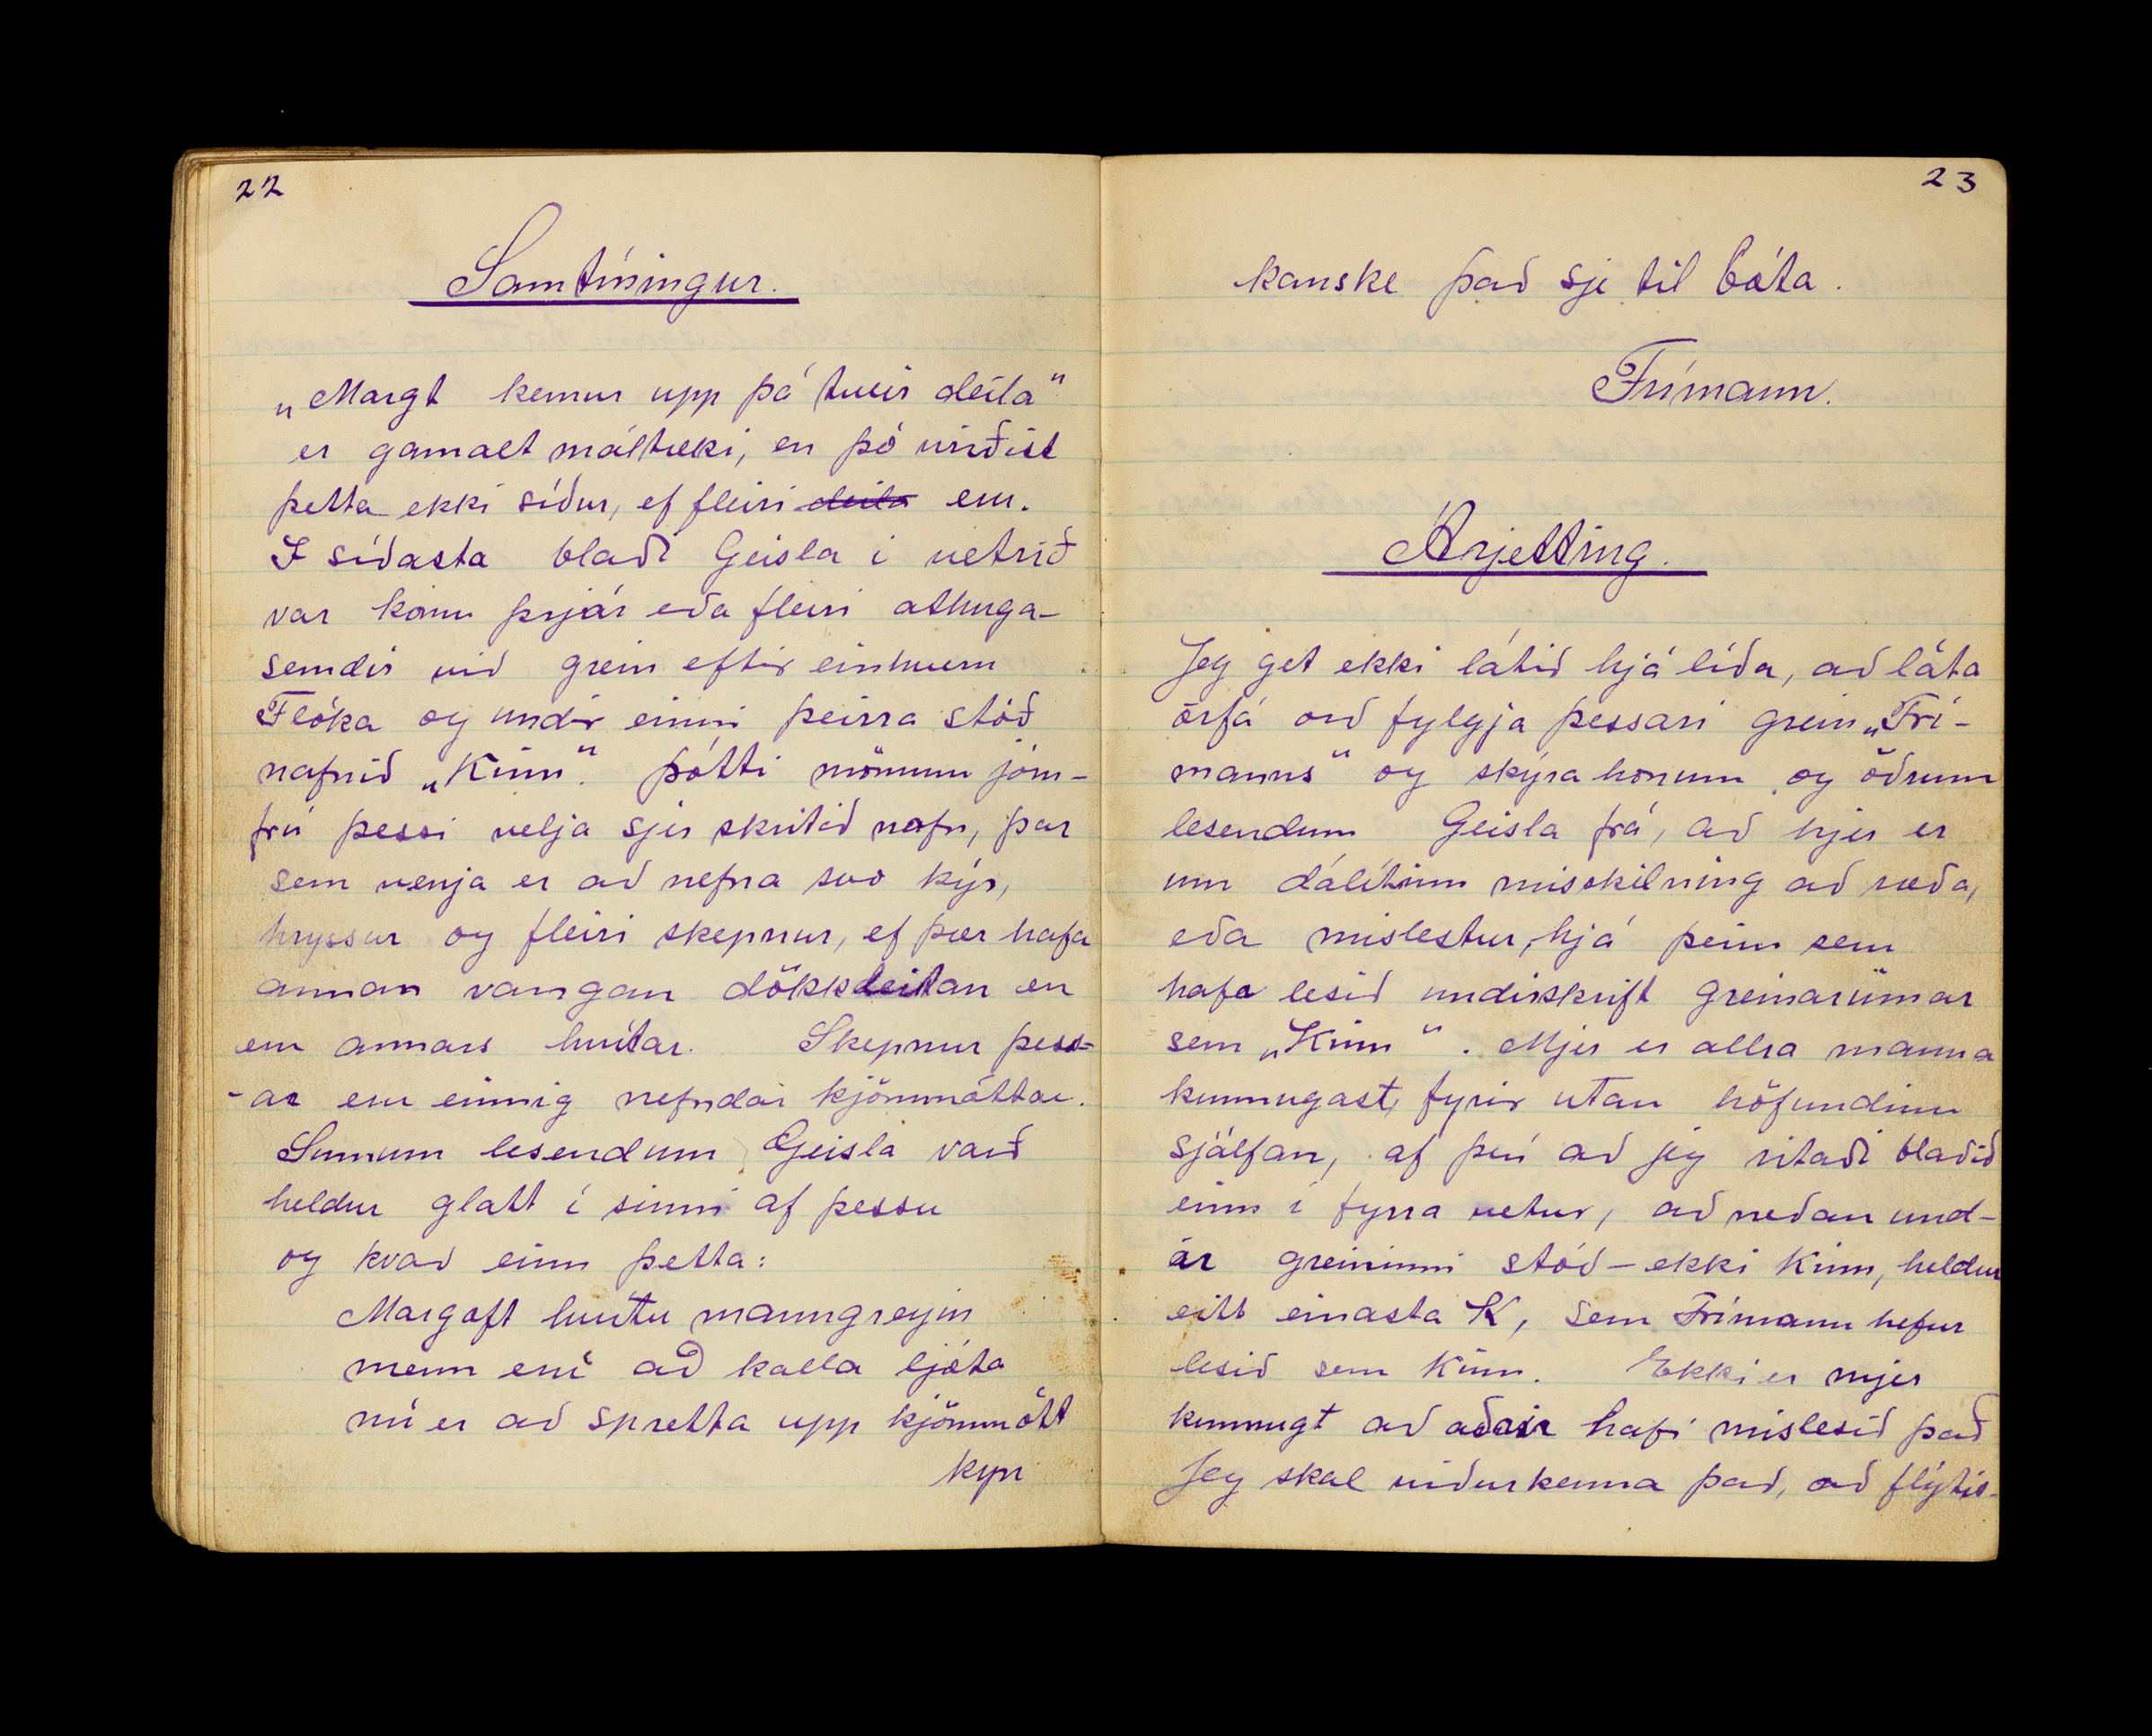 22
Samtíningur.
„Margt kemur upp þá tveir deila"
er gamalt máltæki, en þó virðist
þetta ekki síður, ef fleiri deila eru.
I síðasta blaði Geisla í vetrið
var komu þrjár eða fleiri athuga-
semdir við grein eftir einhvern
Flóka og undir einni þeirra stóð
nafnið „Kinn". Þótti mönnum jóm-
frú þessi velja sjer skritið nafn, þar
sem venja er að nefna svo kýr,
hryssur og fleiri skepnur, ef þær hafa
annan vangan dökkleitan en
eru annars hvítar. Skepnur þess-
-ar eru einnig nefndar kjömmóttar.
Sumum lesendum Geisla varð
heldur glatt í sinni af þessu
og kvað einn þetta:
Margoft hvítu manngreyin
menn eru að kalla ljóta
nú er að spretta upp kjömmótt
kyn
23
kanske það sje til bóta.
Frímann.
Árjetting.
Jeg get ekki látið hjá líða, að láta
örfá orð fylgja þessari grein „Frí-
manns" og skýra honum og öðrum
lesendum Geisla frá, að hjer er
um dálítinn misskilning að ræða,
eða mislestur, hjá þeim sem
hafa lesið undirskrift greinarinnar
sem „Kinn". Mjer er allra manna
kunnugast, fyrir utan höfundinn
sjálfan, af því að jeg ritaði blaðið
einn í fyrra vetur, að neðan und-
ir greininni stóð - ekki Kinn, heldur
eitt einasta K, sem Frímann hefur
lesið sem Kinn. Ekki er mjer
kunnugt að aðrir hafi mislesið það
Jeg skal viðurkenna það, að flýtis-